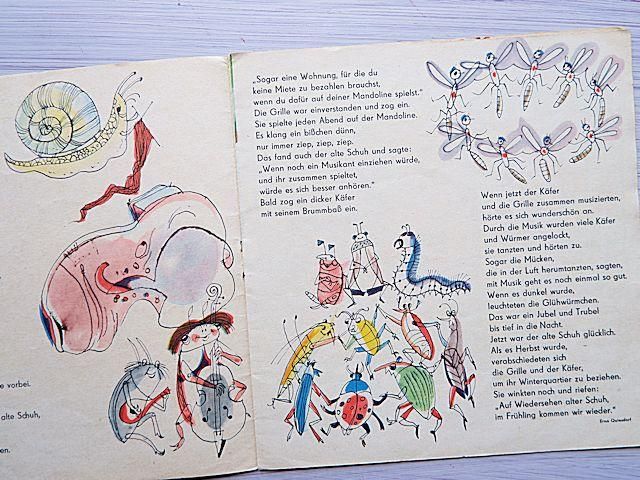 e vorbei.
alte Schuh,
en.
„Sogar eine Wohnung, für die du
keine Miete zu bezahlen brauchst,
wenn du dafür auf deiner Mandoline spielst.“
Die Grille war einverstanden und zog ein.
Sie spielte jeden Abend auf der Mandoline.
Es klang ein bißchen dünn,
nur immer ziep, ziep, ziep.
Das fand auch der alte Schuh und sagte:
„Wenn noch ein Musikant einziehen würde,
und ihr zusammen spieltet,
würde es sich besser anhören.“
Bald zog ein dicker Käfer
mit seinem Brummbaß ein.
Wenn jetzt der Käfer
und die Grille zusammen musizierten,
hörte es sich wunderschön an.
Durch die Musik wurden viele Käfer
und Würmer angelockt,
sie tanzten und hörten zu.
Sogar die Mücken,
die in der Luft herumtanzten, sagten,
mit Musik geht es noch einmal so gut.
Wenn es dunkel wurde,
leuchteten die Glühwürmchen.
Das war ein Jubel und Trubel
bis tief in die Nacht.
Jetzt war der alte Schuh glücklich.
Als es Herbst wurde,
verabschiedeten sich
die Grille und der Käfer,
um ihr Winterquartier zu beziehen.
Sie winkten noch und riefen:
„Auf Wiedersehen alter Schuh,
im Frühling kommen wir wieder.“
Erna